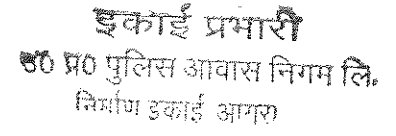 इकाई प्रभारी
उ० प्र० पुलिस आवास निगम लि.
निर्माण इकाई आगरा